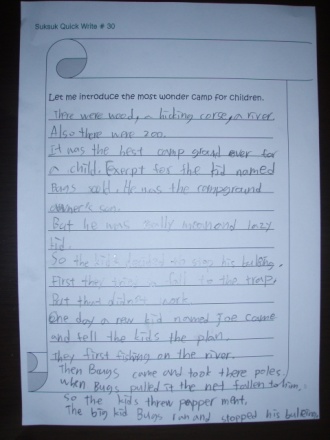 Suksuk Quick Write # 30
Let me introduce the most wonder camp for children.
There were wood, a hicking corse, a river.
Also there were zoo.
It was the best camp ground ever for
a child. Except for the kid named
He was the campground
owner's son.
But he was really mean and lazy
kid.
So the kids decided to stop his buleing.
First they a fall for the trap.
But that didn't work.
One day a new kid named Joe came
and tell the kids the plan.
They first fishing on the river.
Then Baugs came and took there poles.
When Bugs pulled it the net fallen to him.
So the kids threw pepper ment.
The big kid Bugs ran and stopped his